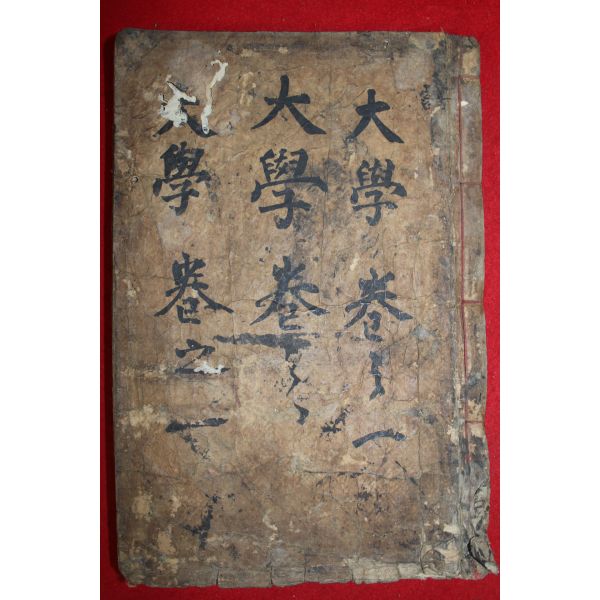 大學 卷之一
大學 卷之
大學 卷之一